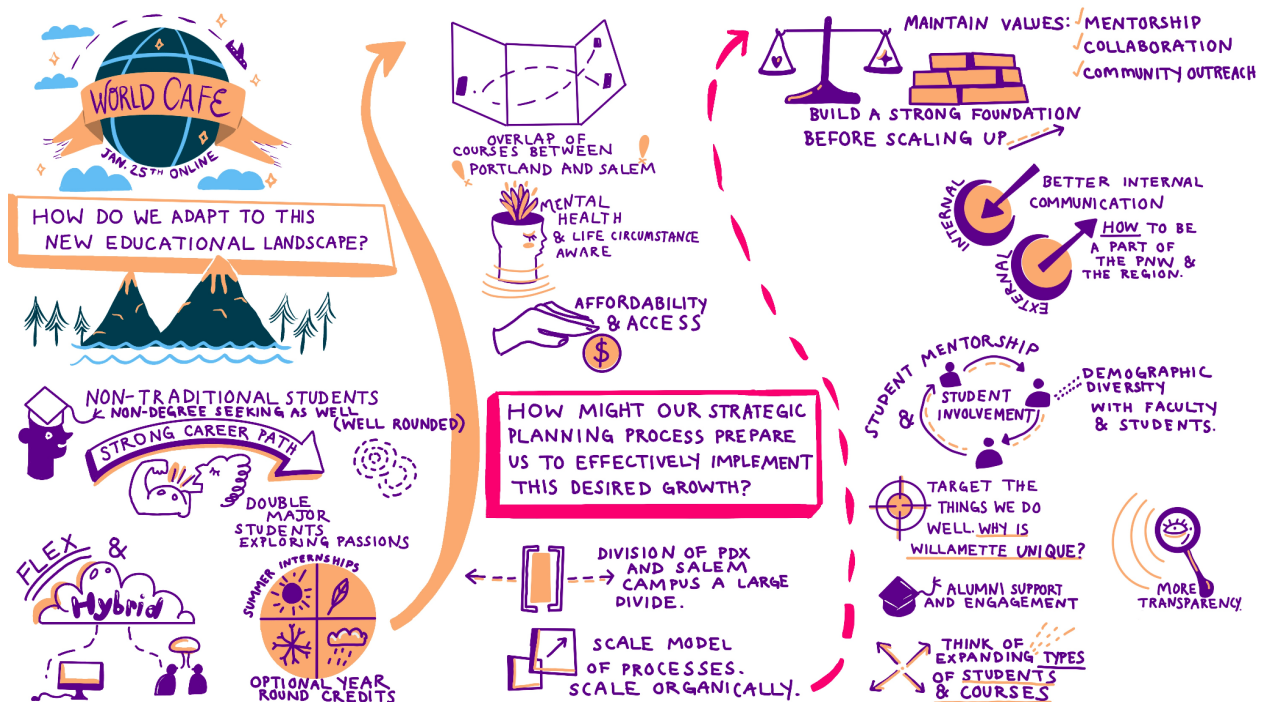 WORLD CAFE
JAN. 25TH ONLINE
HOW DO WE ADAPT TO THIS
NEW EDUCATIONAL LANDSCAPE?
NON-TRADITIONAL STUDENTS
NON-DEGREE SEEKING AS WELL
(WELL ROUNDED)
STRONG CAREER PATH
DOUBLE
MAJOR
STUDENTS
EXPLORING PASSIONS
FLEX &
Hybrid
SUMMER INTERNSHIPS
OPTIONAL YEAR
ROUND CREDITS
OVERLAP OF
COURSES BETWEEN
PORTLAND AND SALEM
MENTAL
HEALTH
& LIFE CIRCUMSTANCE
AWARE
AFFORDABILITY
& ACCESS
$
HOW MIGHT OUR STRATEGIC
PLANNING PROCESS PREPARE
US TO EFFECTIVELY IMPLEMENT
THIS DESIRED GROWTH?
DIVISION OF PDX
AND SALEM
CAMPUS A LARGE
DIVIDE.
SCALE MODEL
OF PROCESSES.
SCALE ORGANICALLY.
MAINTAIN VALUES: ✓MENTORSHIP
✓COLLABORATION
✓COMMUNITY OUTREACH
BUILD A STRONG FOUNDATION
BEFORE SCALING UP
INTERNAL
BETTER INTERNAL
COMMUNICATION
EXTERNAL
HOW TO BE
A PART OF
THE PNW &
THE REGION.
STUDENT MENTORSHIP
&
STUDENT
INVOLVEMENT
DEMOGRAPHIC
DIVERSITY
WITH FACULTY
& STUDENTS.
TARGET THE
THINGS WE DO
WELL. WHY IS
WILLAMETTE UNIQUE?
ALUMNI SUPPORT
AND ENGAGEMENT
MORE
TRANSPARENCY.
THINK OF
EXPANDING TYPES
OF STUDENTS
& COURSES